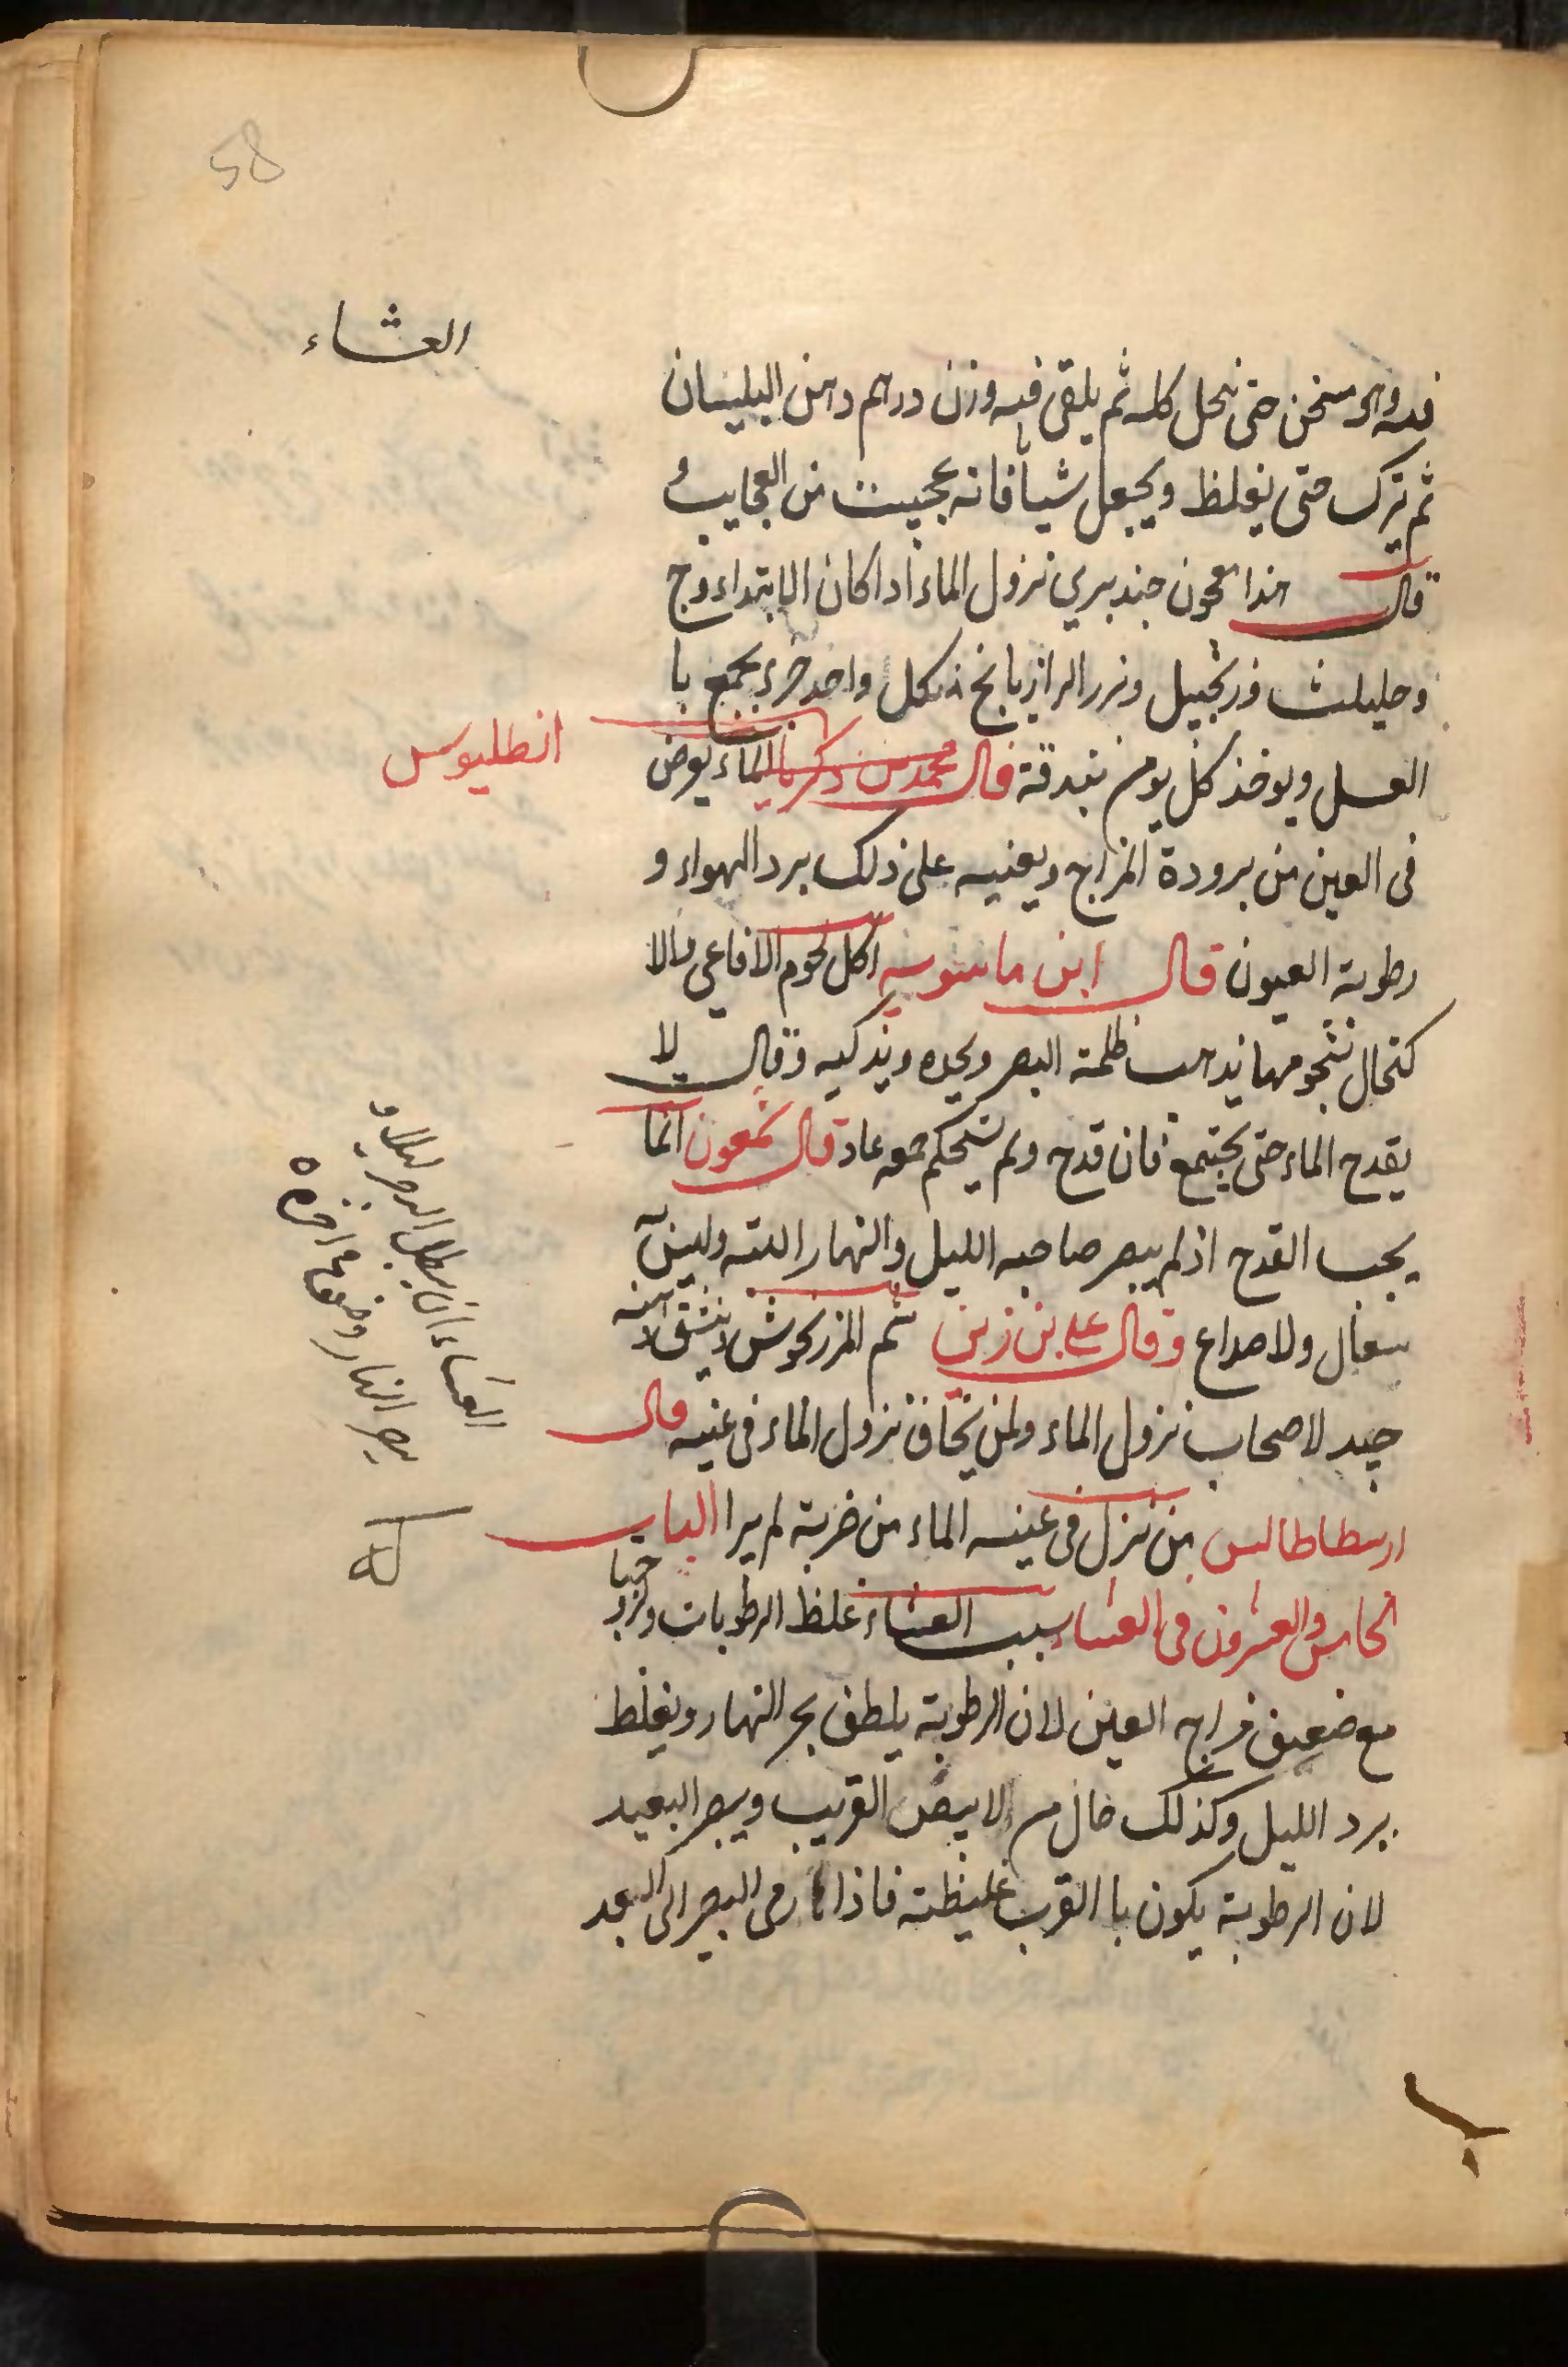 58
العشاء
فيه وهو سخن حتى ينحل كله ثم يلقى فيه وزن درهم دهن البليسان
ثم يترك حتى يغلظ ويجعل شيافا فانه عجيب من العجايب
قال هذا معجون جيد يبري نزول الماء اذا كان الابتداء وج
وحليلث وزنجبيل وبزر الرازيانج من كل واحد جزء يجمع با
العسل ويوخذ كل يوم بندقة قال محمد بن زكريا الماء يعرض
انطليوس
في العين من برودة المزاج ويعنيه على ذلك برد الهواء و
رطوبة العيون قال ابن ماسويه اكل لحوم الافاعي والا
كتحال بشحومها يذهب ظلمة البصر ويحده ويذكيه وقال لا
يقدح الماء حتى يجتمع فان قدح ولم يستحكم جمعه عاد قال شمعون انما
يجب القدح اذ لم يبصر صاحبه الليل والنهار البته وليس به
سعال ولا صداع وقال علي بن زين شم المرزنجوش وينشق دهنه
جيد لاصحاب نزول الماء ولمن يخاف نزول الماء في عينيه قال
ارسطاطالس من نزل في عينه الماء من ضربة لم يبرا الباب
كه
الخامس والعشرون في العشاء سبب العشاء غلظ الرطوبات وبردها
مع ضعف مزاج العين لان الرطوبة يلطف بحر النهار ويغلظ
برد الليل وكذلك حال من لا يبصر القريب ويبصر البعيد
لان الرطوبة يكون با القرب غليظته فاذا رمى البصر الى البعد
العشاء ان يبطل البصر ليلا و
يبصر النهار ويضعف في اخره